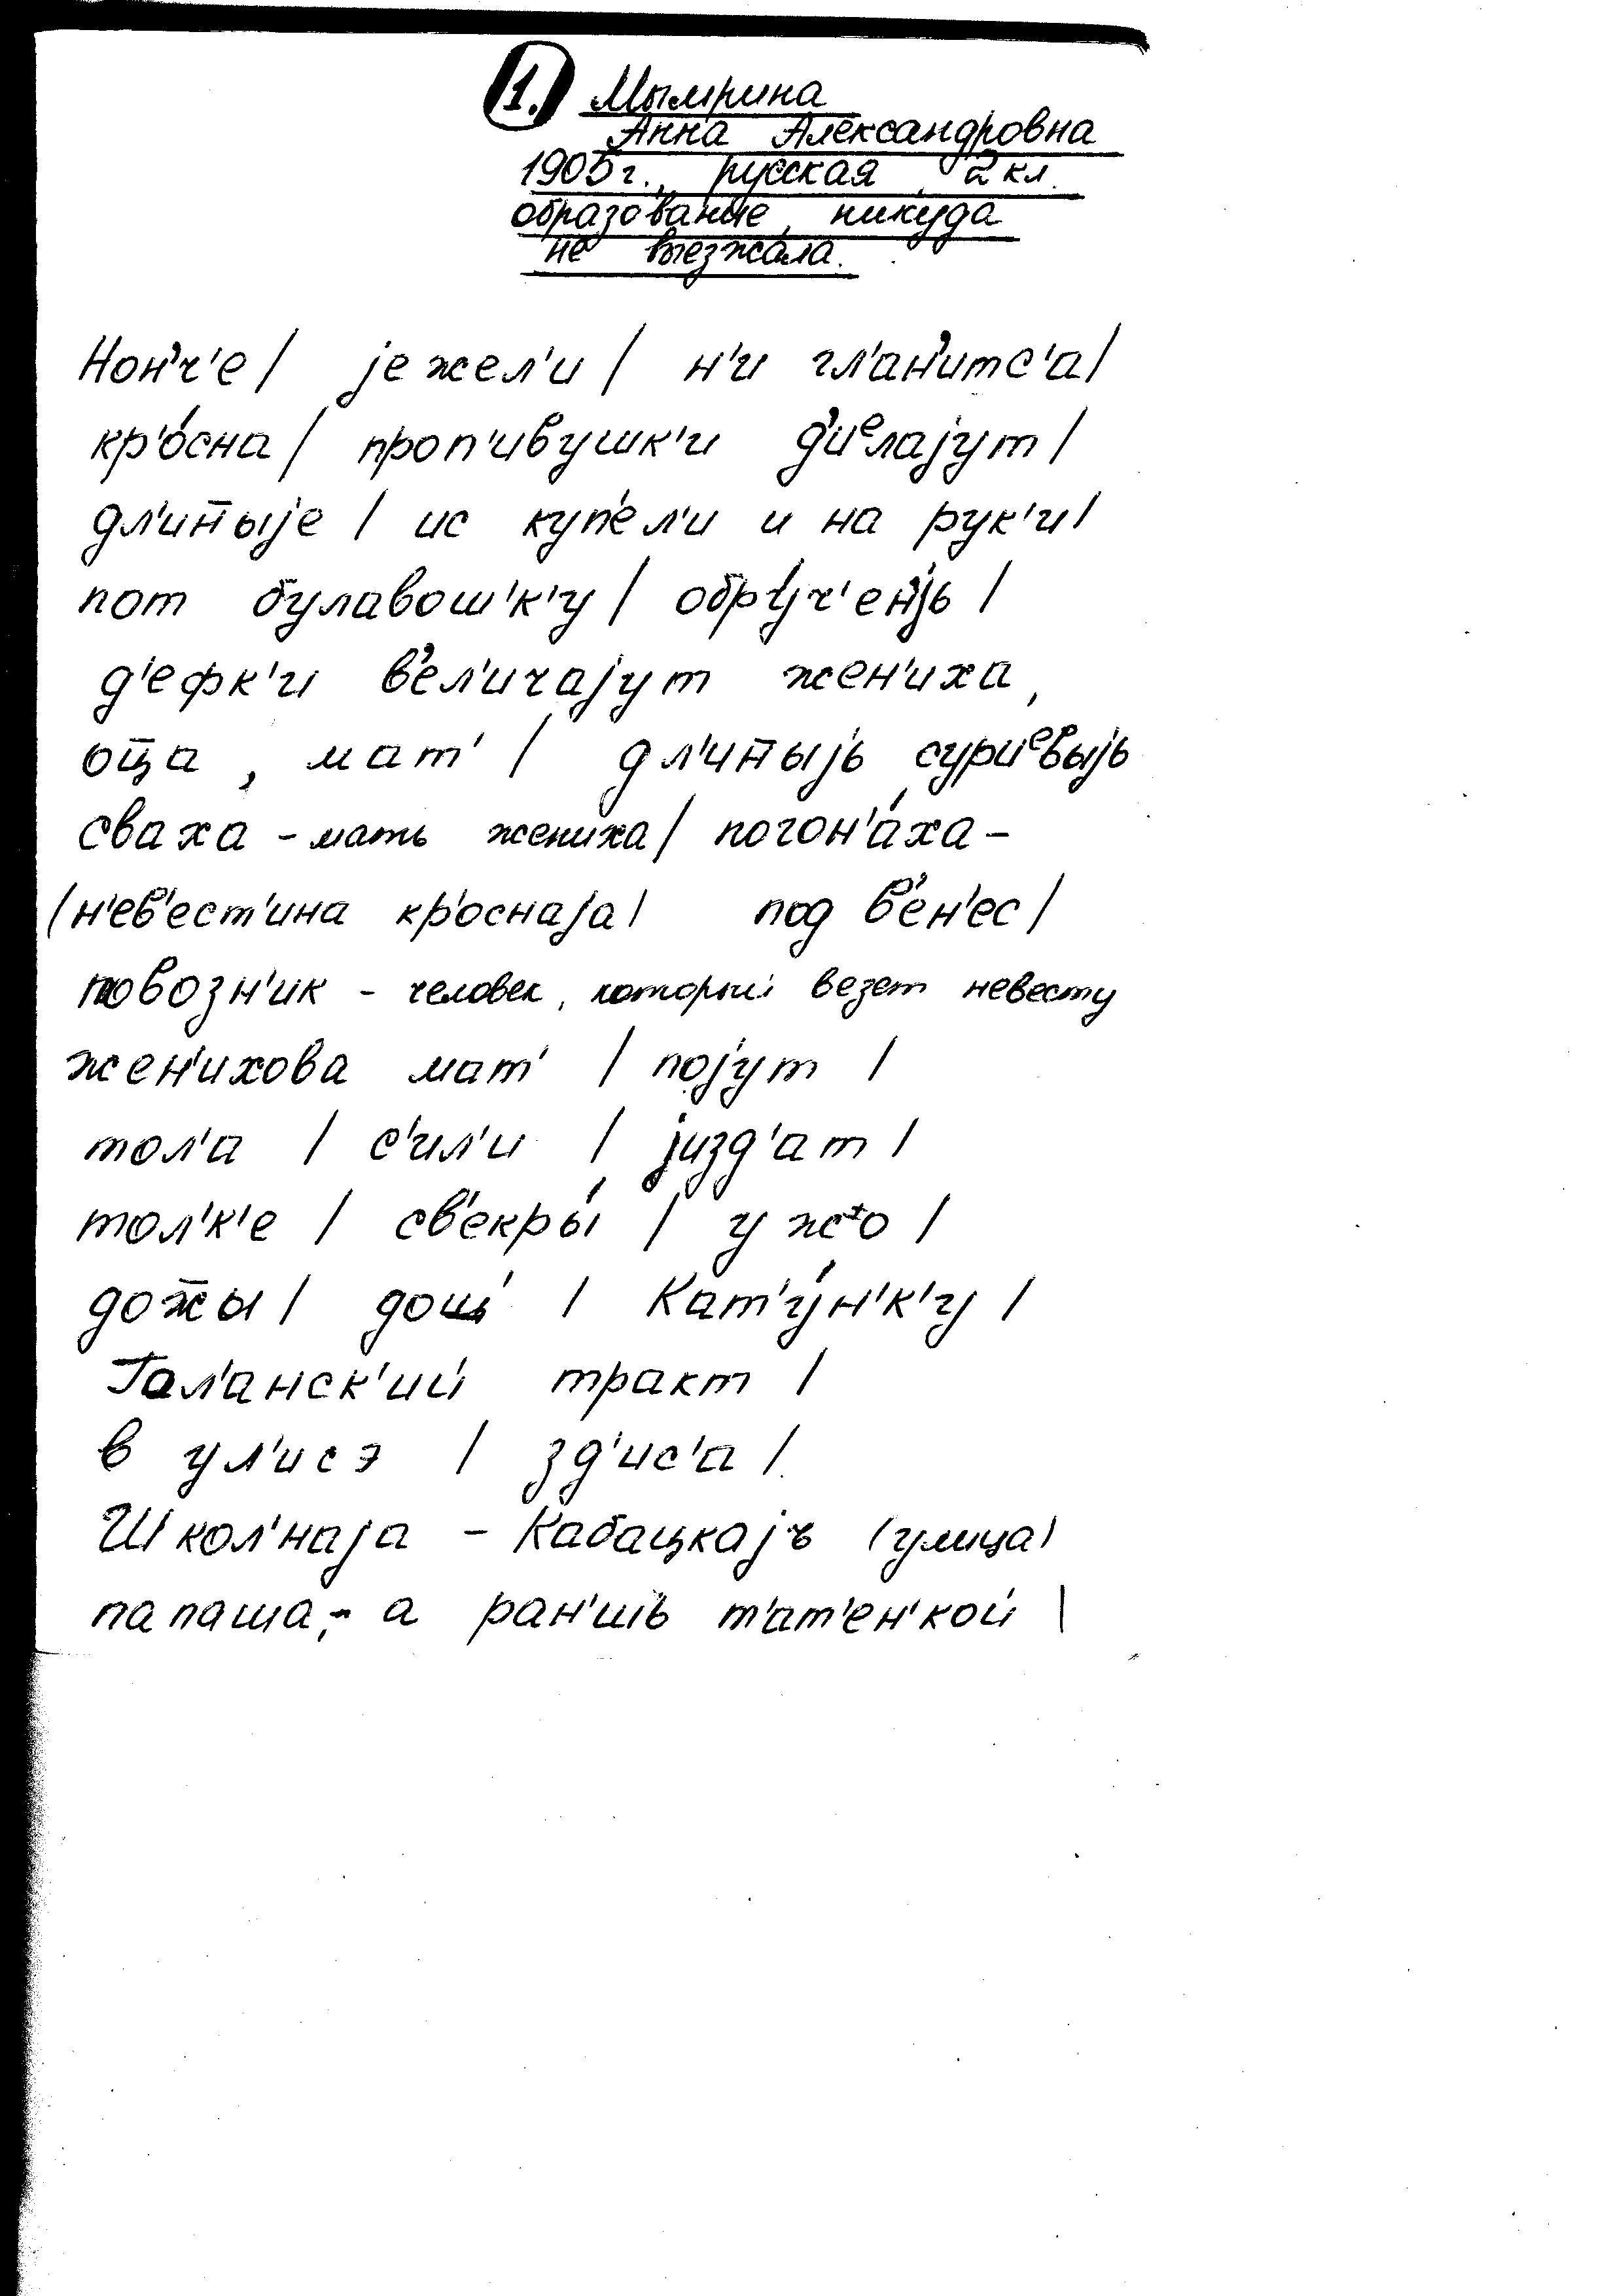 1. Мымрина
Анна Александровна
1905г., русская, 2 кл.
образование, никуда
не выезжала.
Нон'ч'е / јежел'и / н'и гл'ан'итс'а /
кр'о́сна / проп'ивушк'и д'иᵉлајут /
дл'ин̄ыје / ис куп'ел'и и на рук'и /
пот булавош'к'у / обруч'ен'јь /
д'ефк'и в'ел'ичајут жен'иха,
оц̄а, мат' / дл'ин̄ыјь суриᵉвыјь
сваха - мать жениха / погон'а́ха -
(н'ев'ест'ина кр'оснаја) под в'ен'ес /
повозн'ик - человек, который везет невесту
жен'ихова мат' / појут /
тол'а / с'ил'и / јизд'ат /
тол'к'е / св'екры́ / у жᵊо /
дож̄ы / дош' / Кат'у́н'к'у /
Гал'анск'ий тракт /
в ул'исэ / зд'ис'а /
Школ'наја - Кабацкајъ (улица)
папаша, - а ран'шь т'ат'ен'кой /